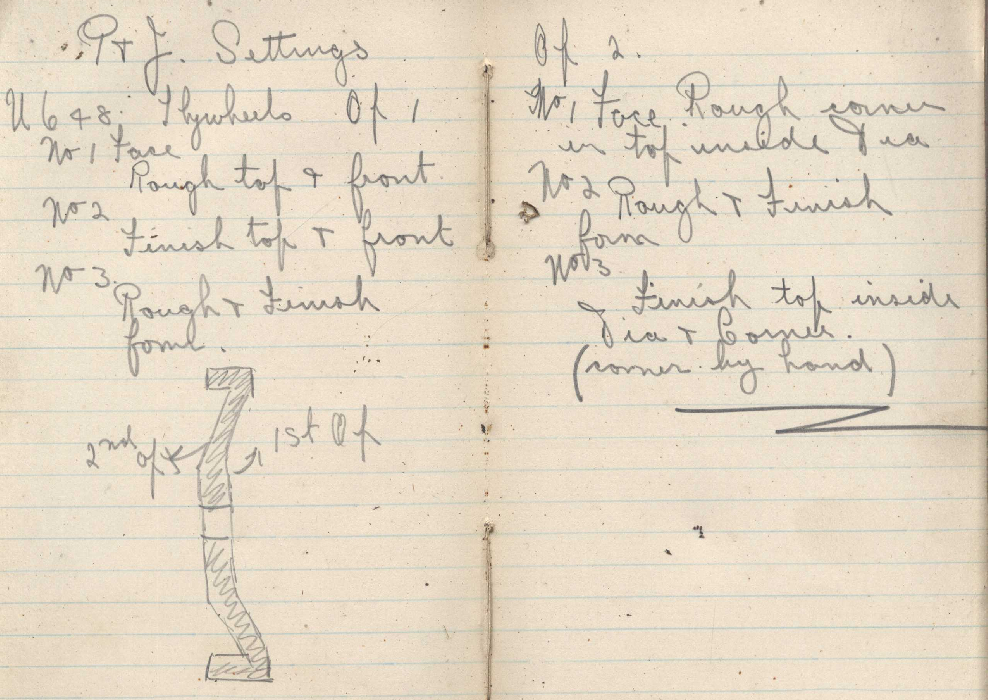 P & J. Settings
U 648. Flywheels Op 1
No 1 Face
Rough top & front.
No 2
Finish top & front
No 3.
Rough & Finish
form.
2nd op
1st Op
Op 2.
No 1 Face. Rough corner
in top inside Dia
No 2 Rough & Finish
form
No 3
Finish top inside
Dia & Corner.
(corner by hand)